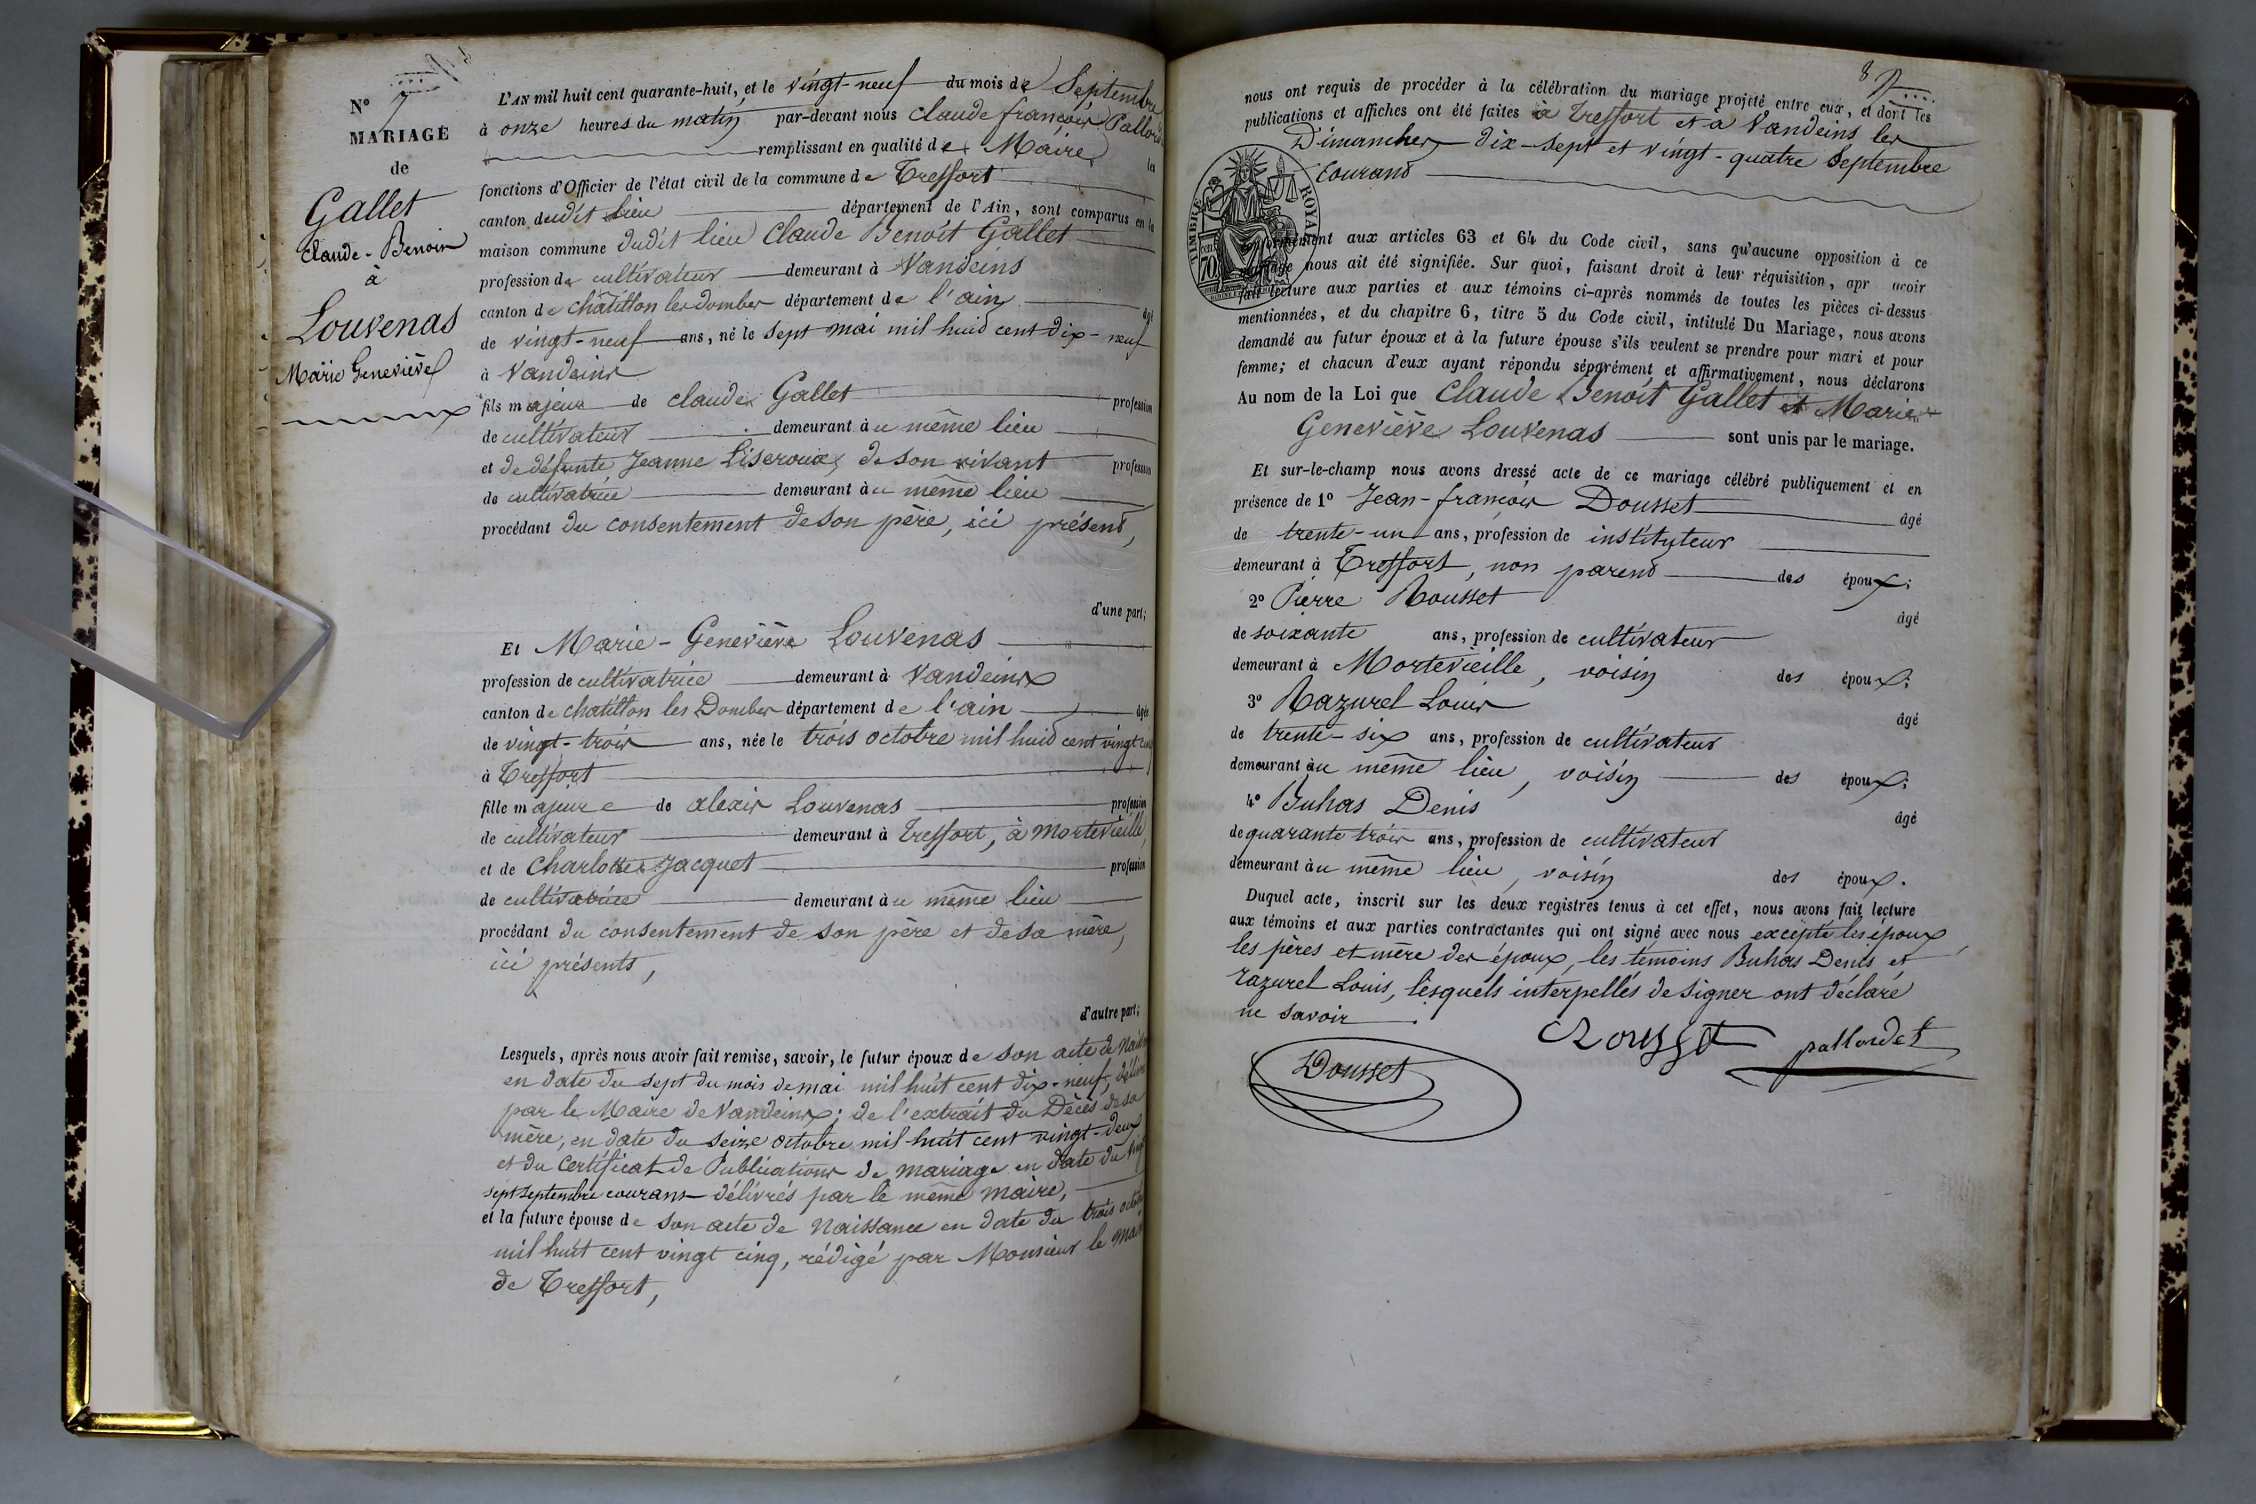 N° 7
MARIAGE
de
Gallet
Claude-Benoit
à
Louvenas
Marie Geneviève
L'AN mil huit cent quarante-huit, et le vingt-neuf du mois de Septembre
à onze heures du matin par-devant nous Claude françois Pallordet
remplissant en qualité de Maire les
fonctions d'Officier de l'état civil de la commune de Treffort
canton dudit lieu département de l'Ain, sont comparus en la
maison commune dudit lieu Claude Benoit Gallet
profession de cultivateur demeurant à Vandeins
canton de chatillon les dombes département de l'ain âgé
de vingt-neuf ans, né le sept mai mil huit cent dix-neuf
à Vandeins
fils majeur de claude Gallet profession
de cultivateur demeurant au même lieu
et de défunte Jeanne Liseroux, de son vivant profession
de cultivatrice demeurant au même lieu
procédant du consentement de son père, ici présent,
d'une part;
Et Marie-Geneviève Louvenas
profession de cultivatrice demeurant à Vandeins
canton de chatillon les Dombes département de l'ain âgée
de vingt-trois ans, née le trois octobre mil huit cent vingt cinq
à Treffort
fille majeure de alexis Louvenas profession
de cultivateur demeurant à Treffort, à Mortevieille,
et de Charlotte Jacquet profession
de cultivatrice demeurant au même lieu
procédant du consentement de son père et de sa mère,
ici présents,
d'autre part;
Lesquels, après nous avoir fait remise, savoir, le futur époux de son acte de
en date du sept du mois de mai mil huit cent dix-neuf, délivré
par le Maire de Vandeins; de l'extrait du Décès de sa
mère, en date du seize octobre mil huit cent vingt-deux
et du Certificat de Publications de mariage en date du vingt
sept septembre courant délivrés par le même maire,
et la future épouse de son acte de Naissance en date du trois octobre
mil huit cent vingt cinq, rédigé par Monsieur le Maire
de Treffort,
8
nous ont requis de procéder à la célébration du mariage projeté entre eux, et dont les
publications et affiches ont été faites à Treffort et à Vandeins les
Dimanches dix-sept et vingt-quatre Septembre
Courant
TIMBRE ROYAL
70
conformément aux articles 63 et 64 du Code civil, sans qu'aucune opposition à ce
mariage nous ait été signifiée. Sur quoi, faisant droit à leur réquisition, apr avoir
fait lecture aux parties et aux témoins ci-après nommés de toutes les pièces ci-dessus
mentionnées, et du chapitre 6, titre 5 du Code civil, intitulé Du Mariage, nous avons
demandé au futur époux et à la future épouse s'ils veulent se prendre pour mari et pour
femme; et chacun d'eux ayant répondu séparément et affirmativement, nous déclarons
Au nom de la Loi que Claude Benoit Gallet et Marie
Geneviève Louvenas sont unis par le mariage.
Et sur-le-champ nous avons dressé acte de ce mariage célébré publiquement et en
présence de 1° Jean-françois Dousset âgé
de trente-un ans, profession de instituteur
demeurant à Treffort, non parent des époux;
2° Pierre Rousset âgé
de soixante ans, profession de cultivateur
demeurant à Mortevieille, voisin des époux;
3° Razurel Louis âgé
de trente-six ans, profession de cultivateur
demeurant au même lieu, voisin des époux;
4° Buhas Denis âgé
de quarante trois ans, profession de cultivateur
demeurant au même lieu, voisin des époux.
Duquel acte, inscrit sur les deux registres tenus à cet effet, nous avons fait lecture
aux témoins et aux parties contractantes qui ont signé avec nous excepté les époux,
les pères et mère des époux, les témoins Buhas Denis et
razurel Louis, lesquels interpellés de signer ont déclaré
ne savoir.
Dousset
Rousset
pallordet